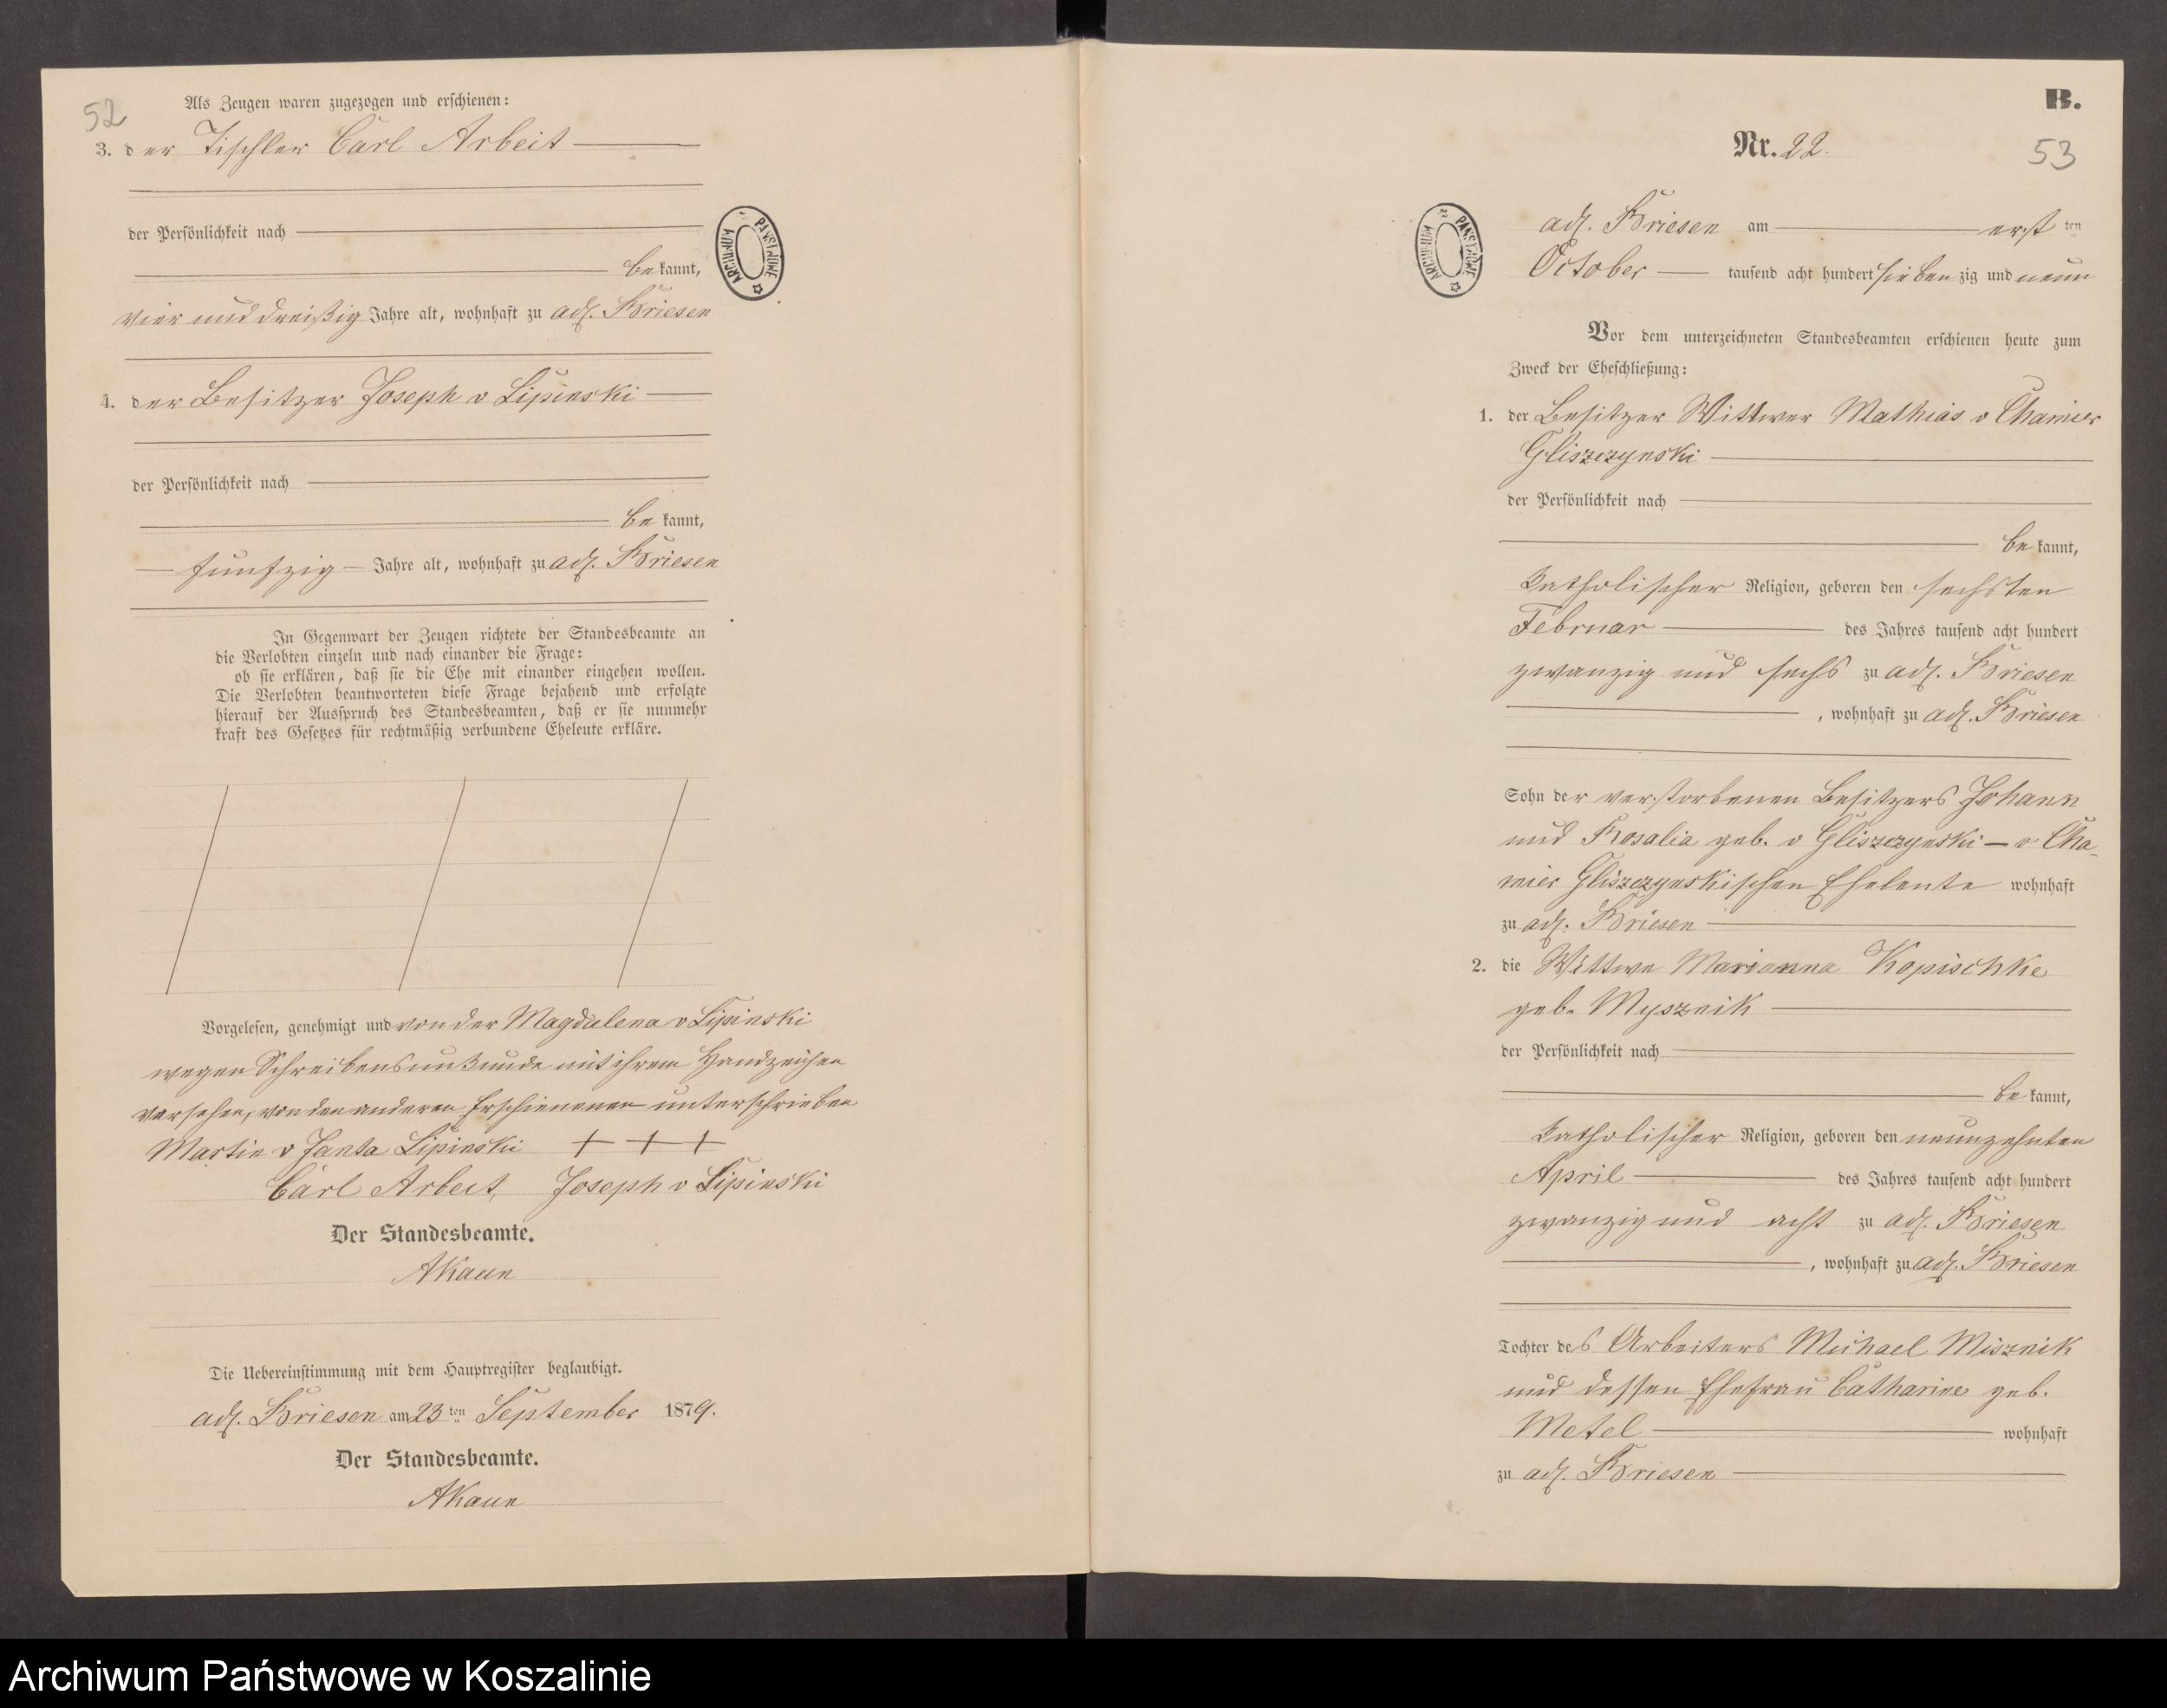 52
Als Zeugen waren zugezogen und erschienen:
3. der Tischler Carl Arbeit
der Persönlichkeit nach
bekannt,
vier und dreißig Jahre alt, wohnhaft zu adl. Briesen
4. der Besitzer Joseph v Lipinski
der Persönlichkeit nach
bekannt,
fünfzig Jahre alt, wohnhaft zu adl. Briesen
In Gegenwart der Zeugen richtete der Standesbeamte an
die Verlobten einzeln und nach einander die Frage:
ob sie erklären, daß sie die Ehe mit einander eingehen wollen.
Die Verlobten beantworteten diese Frage bejahend und erfolgte
hierauf der Ausspruch des Standesbeamten, daß er sie nunmehr
kraft des Gesetzes für rechtmäßig verbundene Eheleute erkläre.
Vorgelesen, genehmigt und von der Magdalena v Lipinski
wegen Schreibensunkunde mit ihrem Handzeichen
versehen, von den anderen Erschienenen unterschrieben
Martin v Janta Lipinski + + +
Carl Arbeit, Joseph v Lipinski
Der Standesbeamte.
AKaun
Die Uebereinstimmung mit dem Hauptregister beglaubigt.
adl. Briesen am 23 ten September 1879.
Der Standesbeamte.
AKaun
ARCHIWUM PAŃSTWOWE
B.
Nr. 22.
53
ARCHIWUM PAŃSTWOWE
adl. Briesen am erst ten
October tausend acht hundert siebenzig und neun
Vor dem unterzeichneten Standesbeamten erschienen heute zum
Zweck der Eheschließung:
1. der Besitzer Wittwer Mathias v Chamier
Gliszczynski
der Persönlichkeit nach
bekannt,
katholischer Religion, geboren den sechsten
Februar des Jahres tausend acht hundert
zwanzig und sechs zu adl. Briesen
, wohnhaft zu adl. Briesen
Sohn der verstorbenen Besitzers Johann
und Rosalia geb. v Gliszczynski – v Cha-
mier Gliszczynskischen Eheleute wohnhaft
zu adl. Briesen
2. die Wittwe Marianna Kopischke
geb. Mysznik
der Persönlichkeit nach
bekannt,
katholischer Religion, geboren den neunzehnten
April des Jahres tausend acht hundert
zwanzig und acht zu adl. Briesen
, wohnhaft zu adl. Briesen
Tochter des Arbeiters Michael Misznik
und dessen Ehefrau Catharine geb.
Metel wohnhaft
zu adl. Briesen
Archiwum Państwowe w Koszalinie